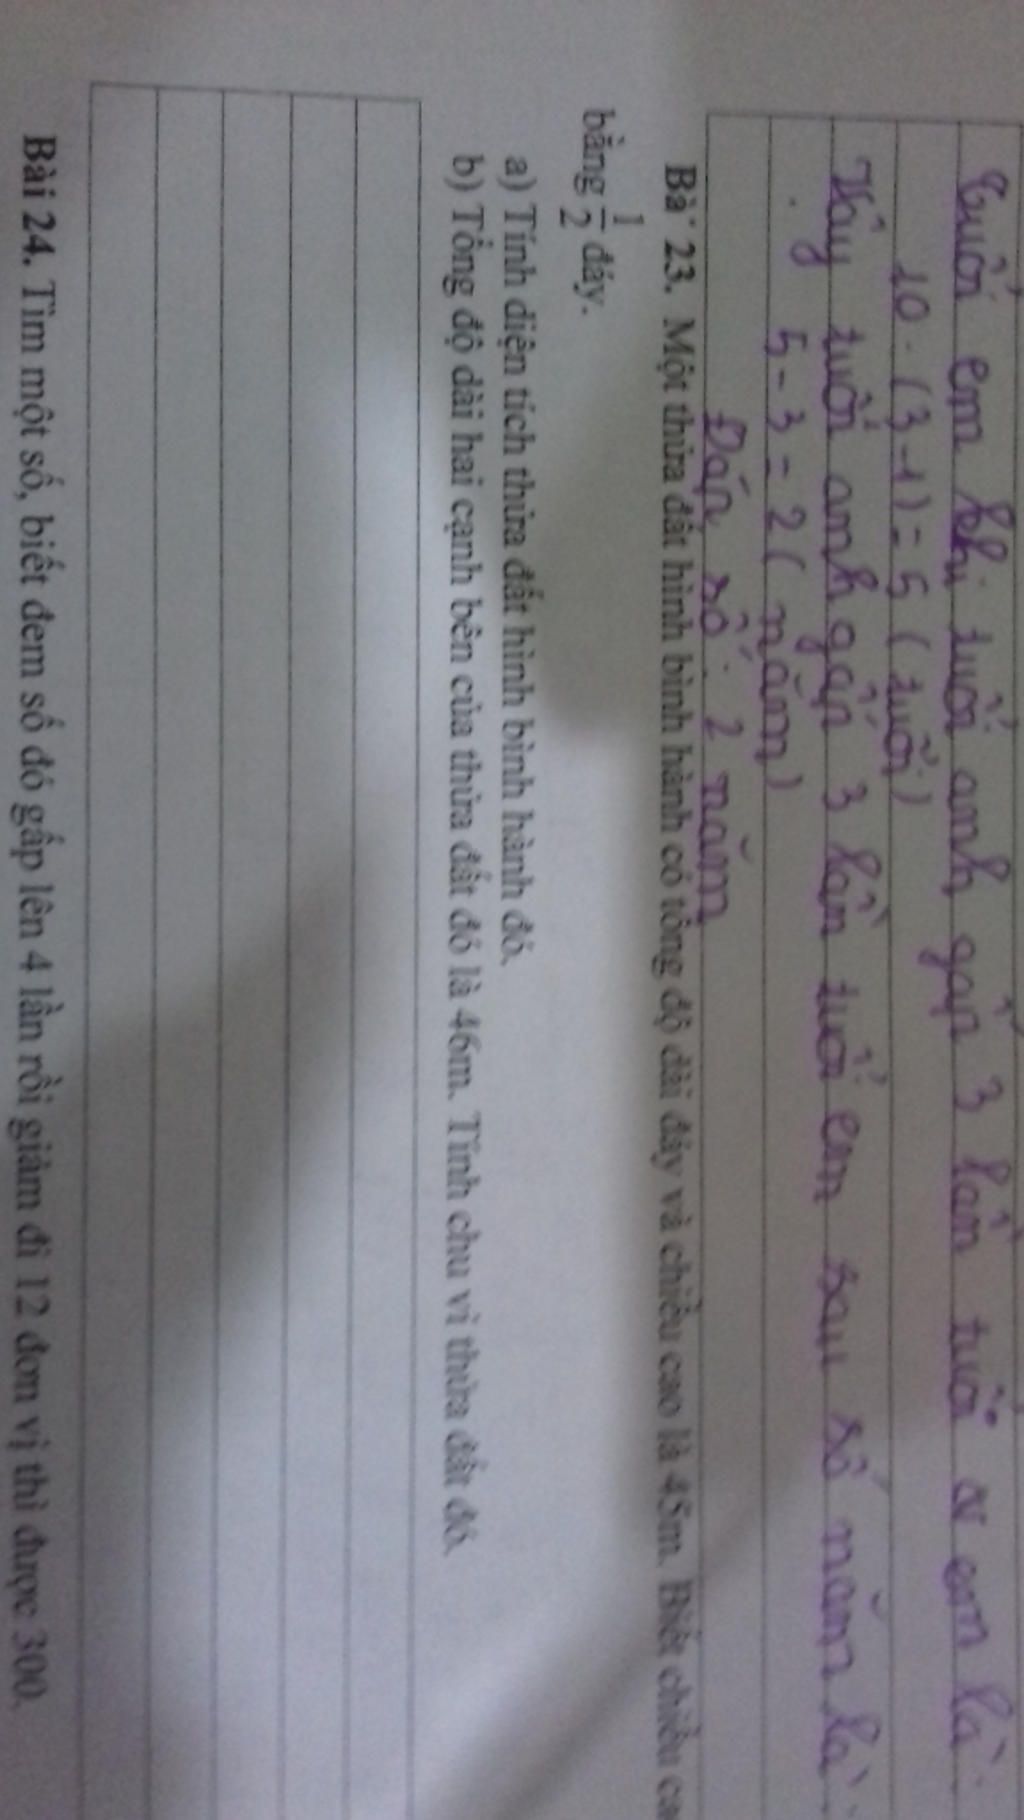 Tuổi em khi tuổi anh gấp 3 lần tuổi em là:
10 : (3-1) = 5 (tuổi)
Vậy tuổi anh gấp 3 lần tuổi em sau số năm là:
5 - 3 = 2 (năm)
Đáp số: 2 năm
Bài 23. Một thửa đất hình bình hành có tổng độ dài đáy và chiều cao là 45m. Biết chiều
bằng 1/2 đáy.
a) Tính diện tích thửa đất hình bình hành đó.
b) Tổng độ dài hai cạnh bên của thửa đất đó là 46m. Tính chu vi thửa đất đó.
Bài 24. Tìm một số, biết đem số đó gấp lên 4 lần rồi giảm đi 12 đơn vị thì được 300.